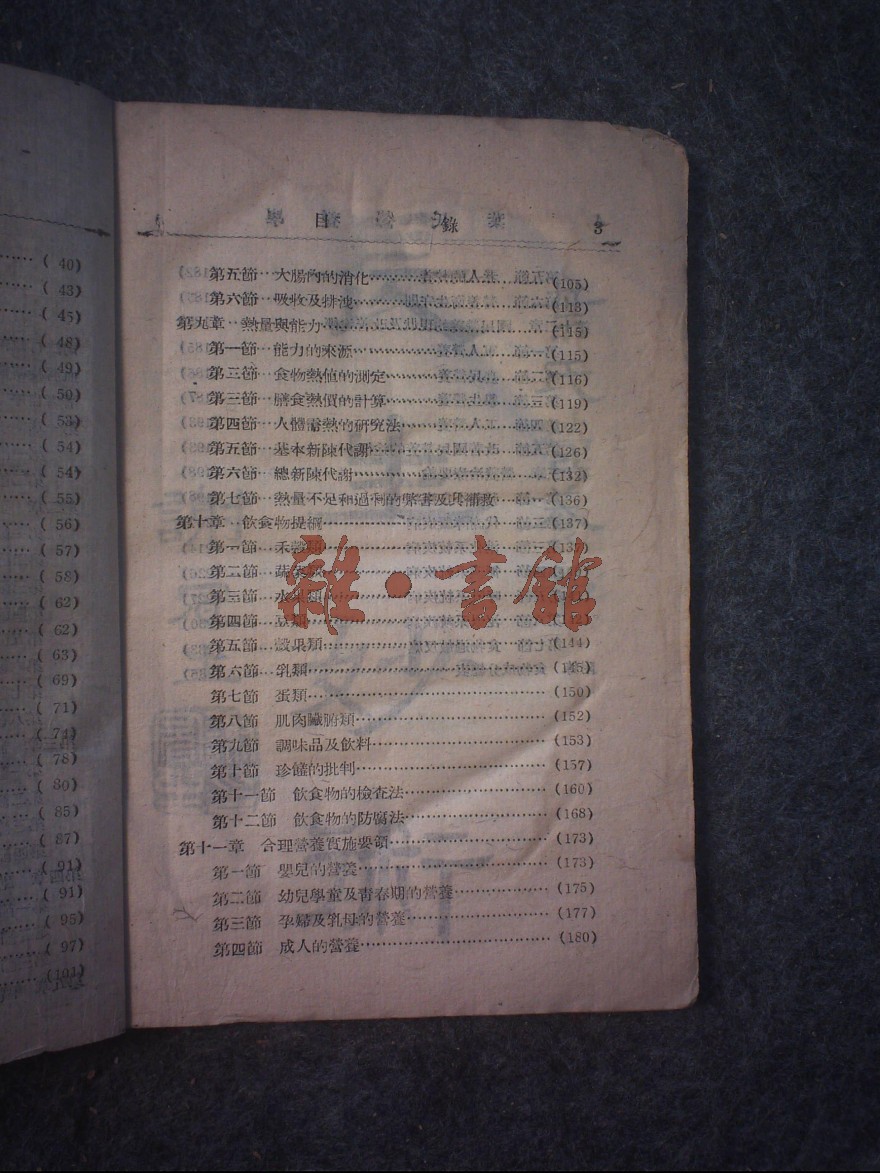 ( 40)
( 43)
( 45)
( 48)
( 49)
( 50)
( 53)
( 54)
( 54)
( 55)
( 56)
( 57)
( 58)
( 62)
( 62)
( 63)
( 69)
( 71)
( 74)
( 78)
( 80)
( 85)
( 87)
( 91)
( 91)
( 95)
( 97)
(101)
目 錄 3
第五節 大腸內的消化 (105)
第六節 吸收及排洩 (113)
第九章 熱量與能力 (115)
第一節 能力的來源 (115)
第二節 食物熱値的測定 (116)
第三節 膳食熱價的計算 (119)
第四節 人體需熱的研究法 (122)
第五節 基本新陳代謝 (126)
第六節 總新陳代謝 (132)
第七節 熱量不足和過剩的弊害及其補救 (136)
第十章 飲食物提綱 (137)
第一節 禾穀類
第二節 蔬菜類
第三節 水果類
第四節 豆類
第五節 殼果類 (144)
第六節 乳類 (145)
第七節 蛋類 (150)
第八節 肌肉臟腑類 (152)
第九節 調味品及飲料 (153)
第十節 珍饈的批判 (157)
第十一節 飲食物的檢查法 (160)
第十二節 飲食物的防腐法 (168)
第十一章 合理營養實施要領 (173)
第一節 嬰兒的營養 (173)
第二節 幼兒學童及靑春期的營養 (175)
第三節 孕婦及乳母的營養 (177)
第四節 成人的營養 (180)
雜·書館